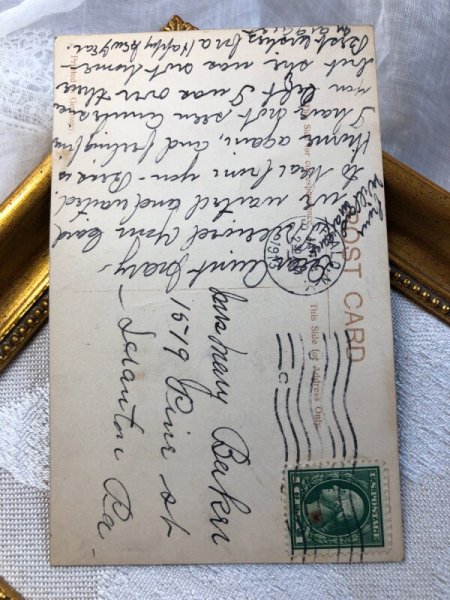 POST CARD
This Side for Address Only.
Aunt Mary-
Received your card
we waited and waited
to hear from you - Bess is
home again, and feeling fine
I have not seen Annie since
you left I was over there
but she was not home-
Best wishes for a Happy New Year.
Maggie
Mary Baker
1519 Pine st
Scranton Pa-
U.S. POSTAGE